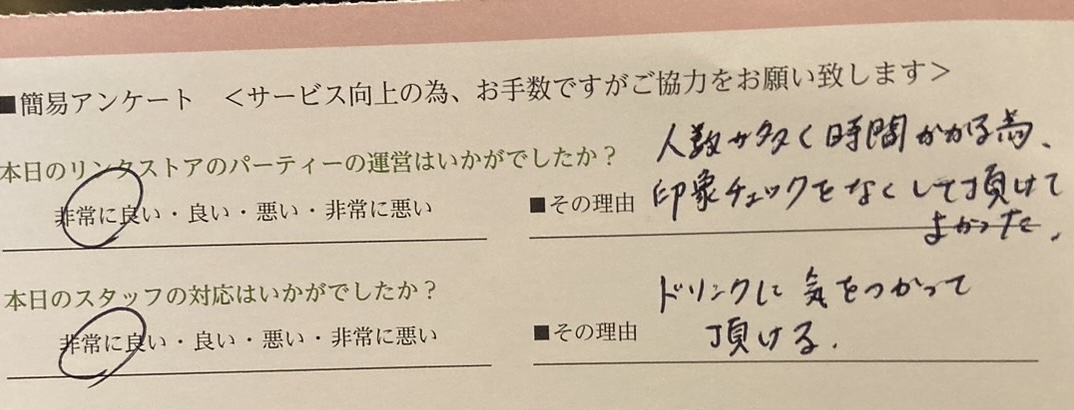 ■簡易アンケート　＜サービス向上の為、お手数ですがご協力をお願い致します＞
本日のリンタストアのパーティーの運営はいかがでしたか？
非常に良い・良い・悪い・非常に悪い
■その理由
人数が多く時間がかかる為、
印象チェックをなくして頂けて
よかった。
本日のスタッフの対応はいかがでしたか？
非常に良い・良い・悪い・非常に悪い
■その理由
ドリンクに気をつかって
頂ける。